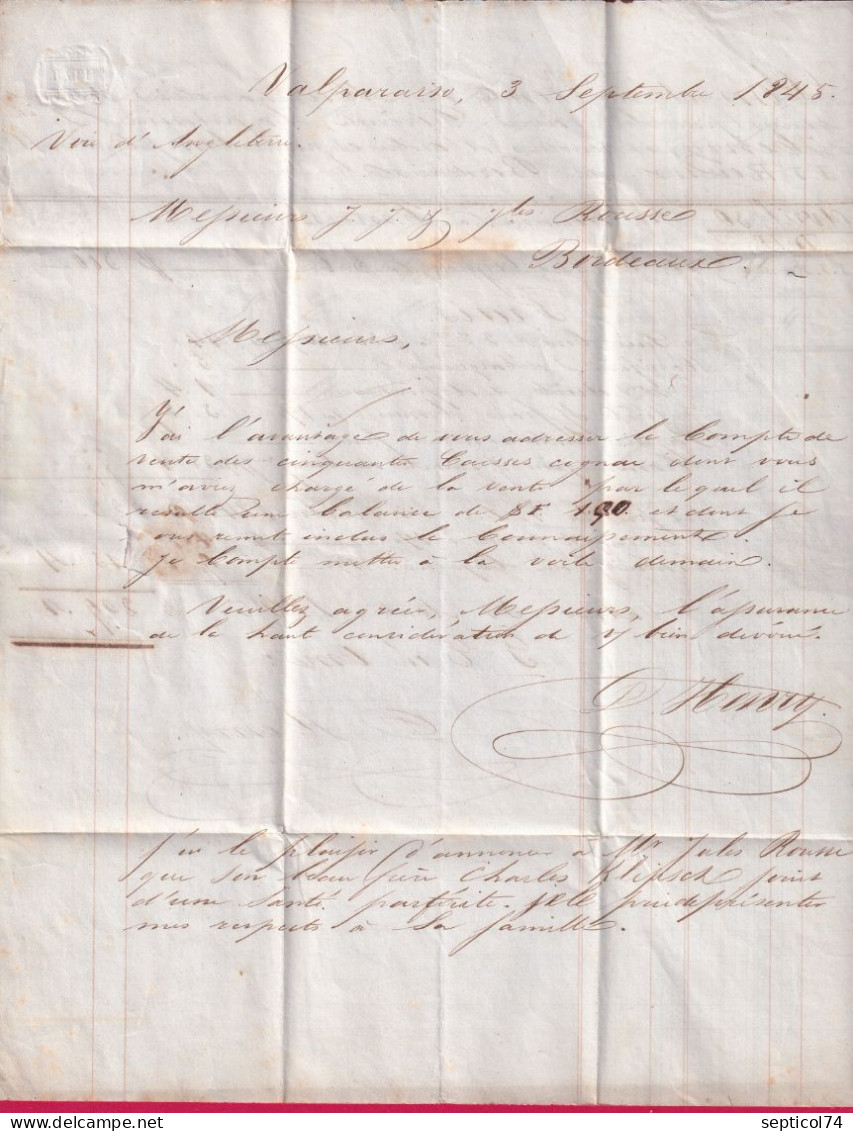 Valparaiso, 3 Septembre 1845.
Voie d'Angleterre.
Messieurs J. J. & Jles Rousse
Bordeaux.
Messieurs,
J'ai l'avantage de vous adresser le Compte de
vente des cinquante Caisses cognac dont vous
m'aviez chargé de la vente par lequel il
resulte une balance de 190. et dont je
vous remet inclus le Connaissement.
Je Compte mettre à la voile demain.
Veuillez agréer, Messieurs, l'assurance
de la haut considération de v/ bien dévoué.
P Henry.
J'ai le plaisir d'annoncer à Mr Jules Rousse
que son beau frère Charles Klipsch jouit
d'une santé parfaite. Je le prie de présenter
mes respects à sa famille.
septicol74